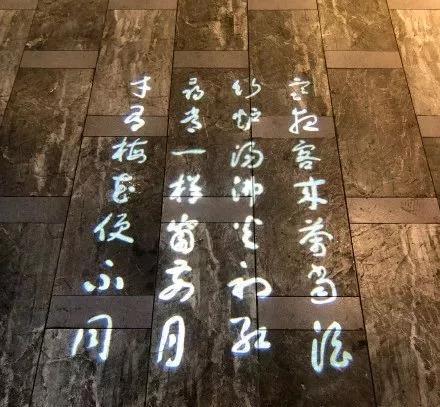 寒夜客来茶当酒
竹炉汤沸火初红
寻常一样窗前月
才有梅花便不同